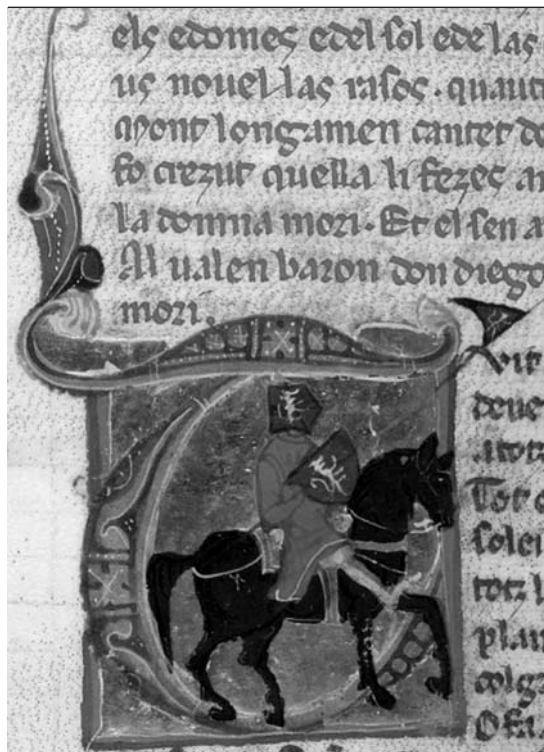 els edomes edel sol ede las
us nouellas rasos. quant
Mont longamen cantet do
fo crezut quella li fezes
la domna mori. Et el sen a
Al ualen baron don diego
mori.
vit
deue
Tot
solei
totz l
plan
colg